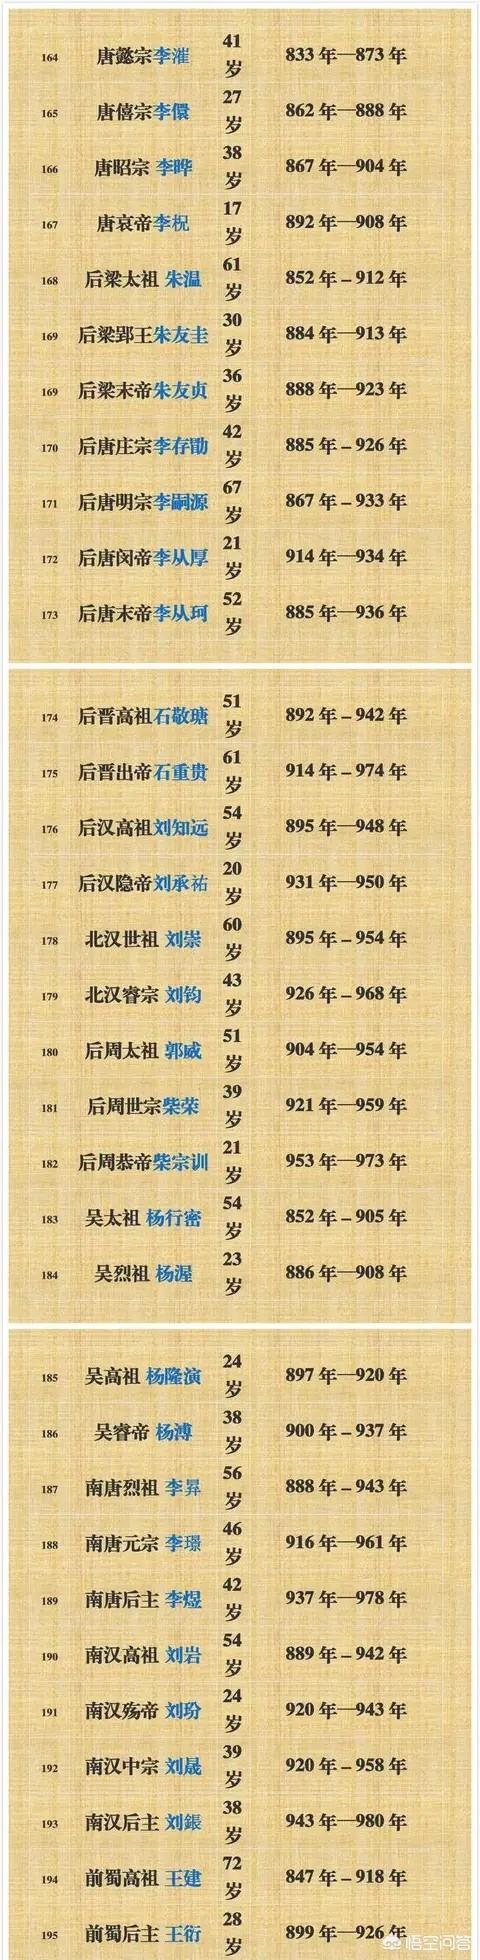 164 唐懿宗李漼 41岁 833年—873年
165 唐僖宗李儇 27岁 862年—888年
166 唐昭宗 李晔 38岁 867年—904年
167 唐哀帝李柷 17岁 892年—908年
168 后梁太祖 朱温 61岁 852年–912年
169 后梁郢王朱友圭 30岁 884年—913年
169 后梁末帝朱友贞 36岁 888年—923年
170 后唐庄宗李存勖 42岁 885年–926年
171 后唐明宗李嗣源 67岁 867年–933年
172 后唐闵帝李从厚 21岁 914年—934年
173 后唐末帝李从珂 52岁 885年—936年
174 后晋高祖石敬瑭 51岁 892年–942年
175 后晋出帝石重贵 61岁 914年–974年
176 后汉高祖刘知远 54岁 895年—948年
177 后汉隐帝刘承祐 20岁 931年—950年
178 北汉世祖 刘崇 60岁 895年–954年
179 北汉睿宗 刘钧 43岁 926年–968年
180 后周太祖 郭威 51岁 904年—954年
181 后周世宗柴荣 39岁 921年—959年
182 后周恭帝柴宗训 21岁 953年—973年
183 吴太祖 杨行密 54岁 852年–905年
184 吴烈祖 杨渥 23岁 886年—908年
185 吴高祖 杨隆演 24岁 897年—920年
186 吴睿帝 杨溥 38岁 900年–937年
187 南唐烈祖 李昪 56岁 888年–943年
188 南唐元宗 李璟 46岁 916年—961年
189 南唐后主 李煜 42岁 937年—978年
190 南汉高祖 刘岩 54岁 889年–942年
191 南汉殇帝 刘玢 24岁 920年—943年
192 南汉中宗 刘晟 39岁 920年–958年
193 南汉后主 刘鋹 38岁 943年—980年
194 前蜀高祖 王建 72岁 847年–918年
195 前蜀后主 王衍 28岁 899年—926年
悟空问答